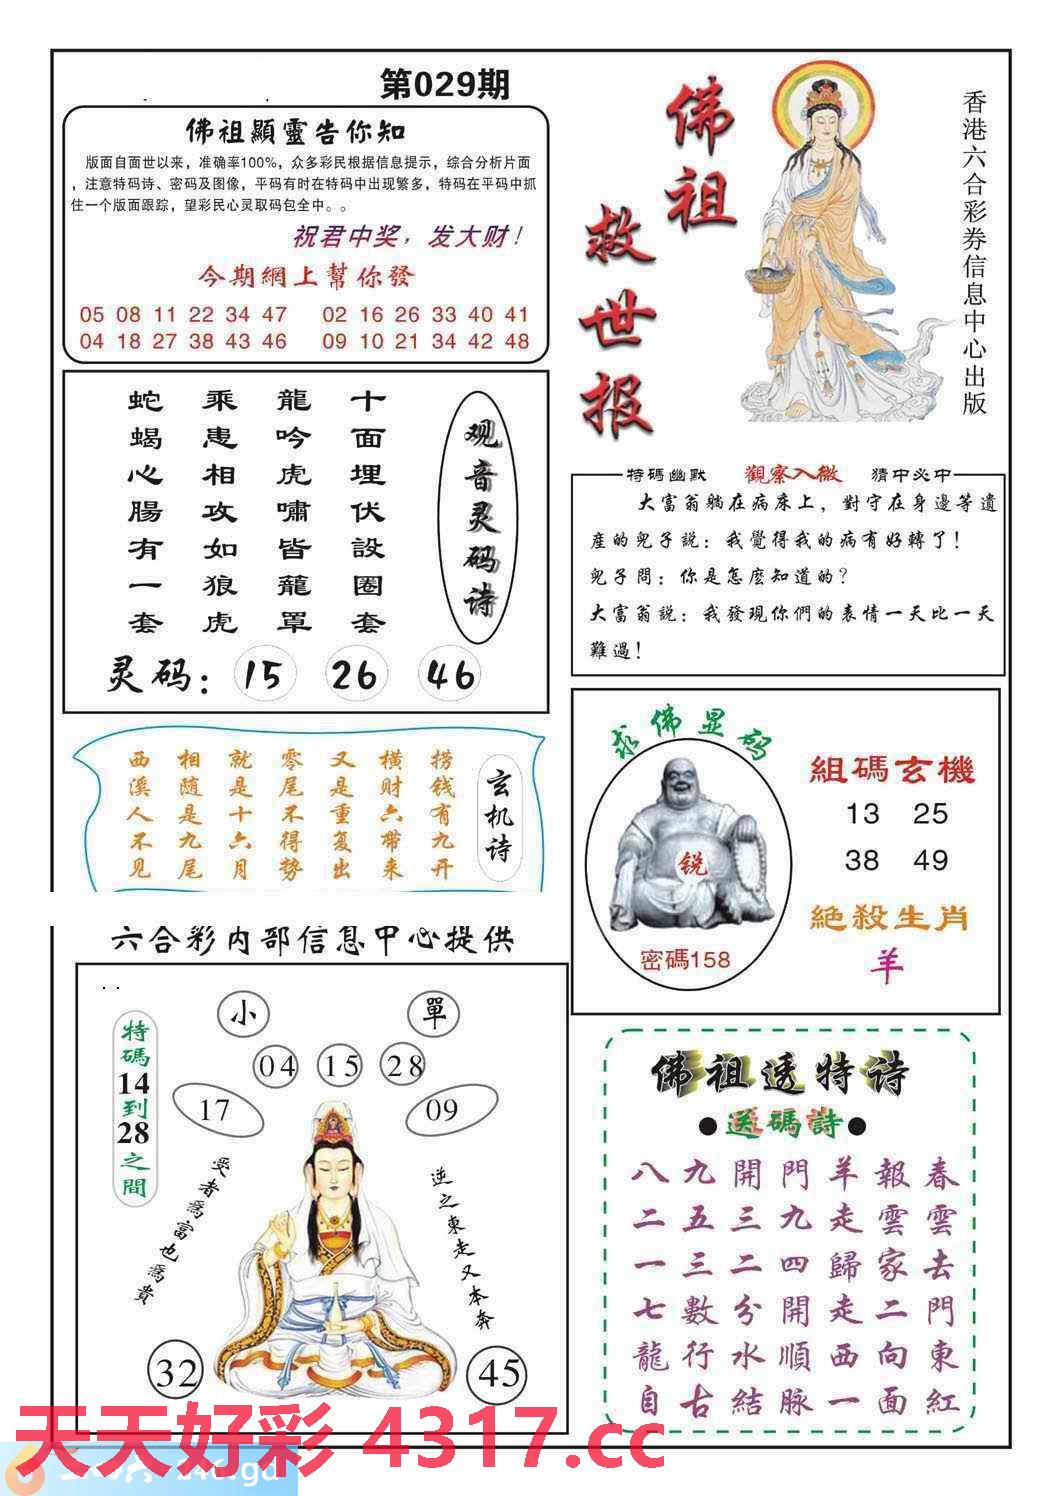 第029期
佛祖顯靈告你知
版面自面世以来，准确率100%，众多彩民根据信息提示，综合分析片面
，注意特码诗、密码及图像，平码有时在特码中出现繁多，特码在平码中抓
住一个版面跟踪，望彩民心灵取码包全中。。
祝君中奖，发大财！
今期網上幫你發
05 08 11 22 34 47 02 16 26 33 40 41
04 18 27 38 43 46 09 10 21 34 42 48
佛祖
救世报
香港六合彩券信息中心出版
观音灵码诗
十面埋伏設圈套
龍吟虎嘯皆籠罩
乘患相攻如狼虎
蛇蝎心腸有一套
灵码：15 26 46
特碼幽默 觀察入微 猜中必中
大富翁躺在病床上，對守在身邊等遺
産的兒子説：我覺得我的病有好轉了！
兒子問：你是怎麽知道的？
大富翁説：我發現你們的表情一天比一天
難過！
玄机诗
捞钱有九开
横财六带来
又是重复出
零尾不得势
就是十六月
相随是九尾
西溪人不见
求佛显码
锐
密碼158
組碼玄機
13 25
38 49
絕殺生肖
羊
六合彩内部信息中心提供
小 單
04 15 28
17 09
特碼14到28之間
受者爲富也爲貴
逆之東走又本奔
32 45
佛祖透特诗
●送碼詩●
八九開門羊報春
二五三九走雲雲
一三二四歸家去
七數分開走二門
龍行水順西向東
自古結脉一面紅
天天好彩 4317.cc
246.gd